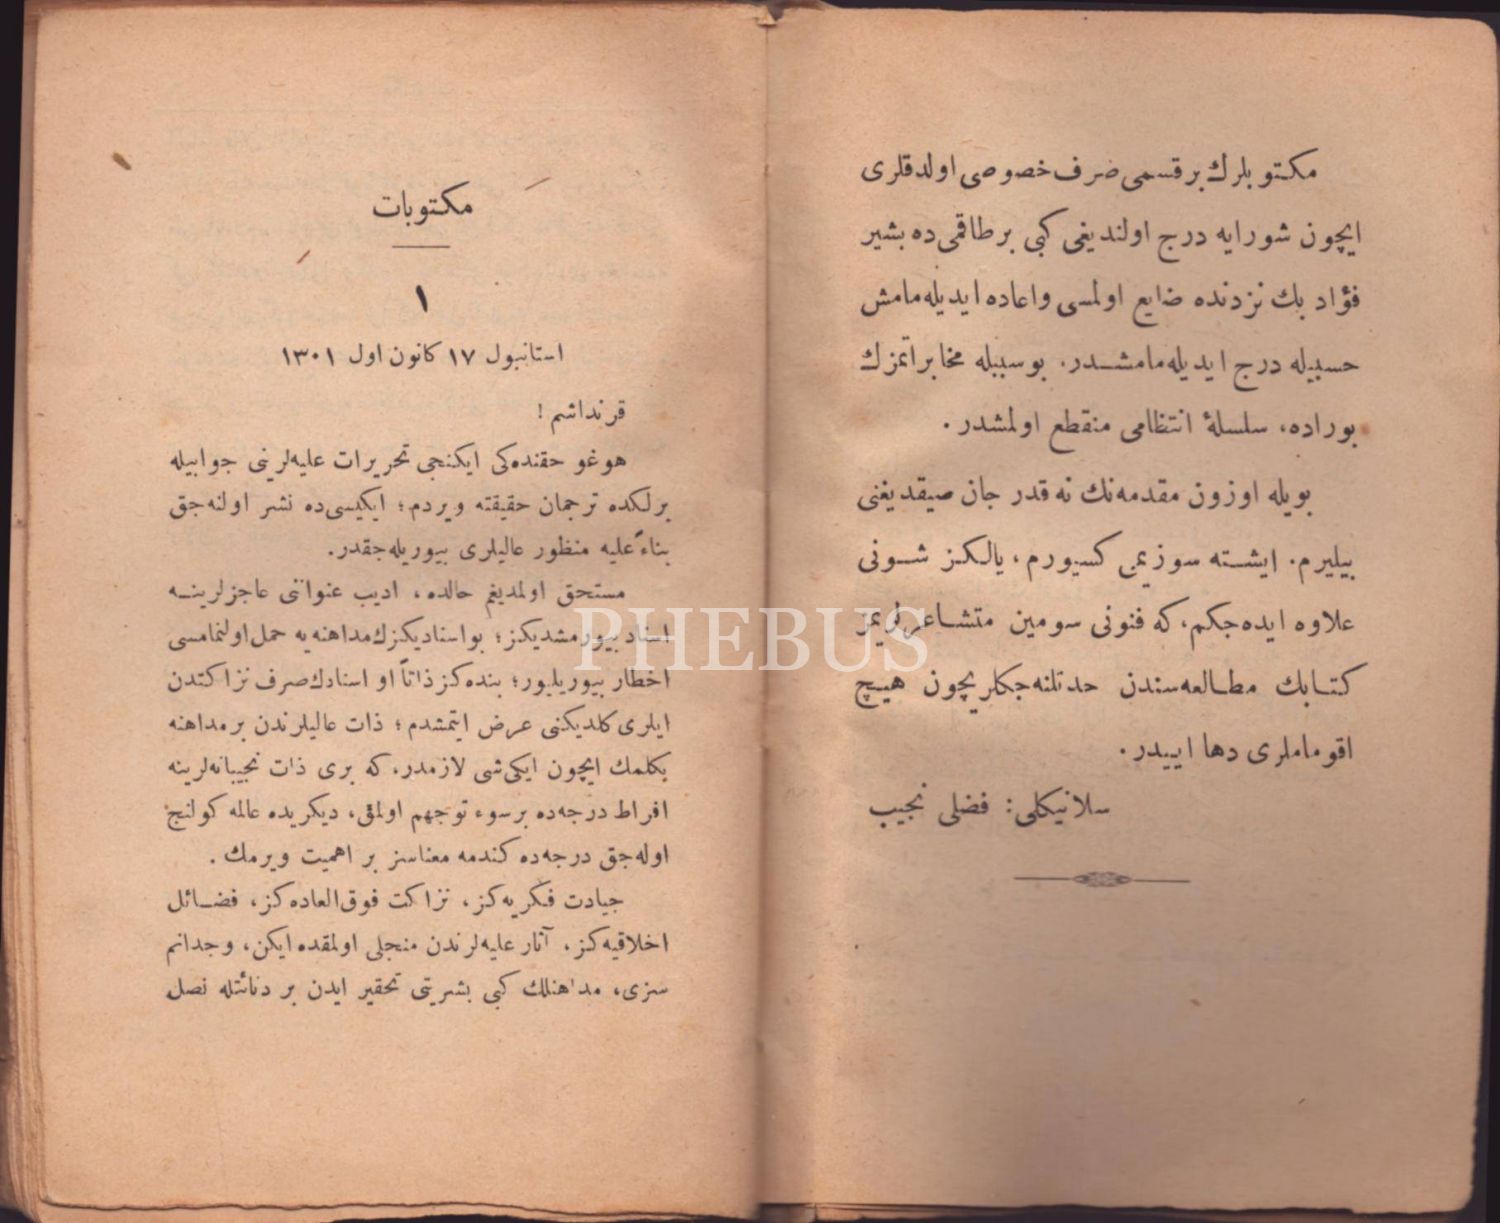 مكتوبلرك برقسمی صرف خصوصی اولدقلری
ایچون شورایه درج اولندیغی كبی برطاقمی ده بشیر
فؤاد بك نزدنده ضایع اولمسی واعاده ایدیله‌مامش
حسبیله درج ایدیله‌مامشدر. بوسببله مخابراتمزك
بوراده، سلسلهٔ انتظامی منقطع اولمشدر.
بویله اوزون مقدمه‌نك نه قدر جان صیقدیغنی
بیلیرم. ایشته سوزیمی كسیورم، یالكز شونی
علاوه ایده‌جكم، كه فنونی سومین متشاعرلریمز
كتابك مطالعه‌سندن حدتلنه‌جكلریچون هیچ
اقوماملری دها اییدر.
سلانیكلی: فضلی نجیب
مكتوبات
١
استانبول ١٧ كانون اول ١٣٠١
قرنداشم!
هوغو حقنده‌كی ایكنجی تحریرات علیه‌لرینی جوابیله
برلكده ترجمان حقیقته ویردم؛ ایكیسی ده نشر اولنه‌جق
بناءً علیه منظور عالیلری بیوریله‌جقدر.
مستحق اولمدیغم حالده، ادیب عنواننی عاجزلرینه
اسناد بیورمشدیكز؛ بواسنادیكزك مداهنه‌یه حمل اولنمامسی
اخطار بیوریلیور؛ بنده‌كز ذاتاً او اسنادك صرف نزاكتدن
ایلری كلدیكنی عرض ایتمشدم؛ ذات عالیلرندن برمداهنه
بكلمك ایچون ایكی شی لازمدر، كه بری ذات نجیبانه‌لرینه
افراط درجه‌ده برسوء توجهم اولمق، دیكریده عالمه كولنج
اوله‌جق درجه‌ده كندمه معناسز بر اهمیت ویرمك.
جیادت فكریه‌كز، نزاكت فوق‌العاده‌كز، فضائل
اخلاقیه‌كز، آثار علیه‌لرندن منجلی اولمقده ایكن، وجدانم
سزی، مداهنلك كبی بشریتی تحقیر ایدن بر دنائتله نصل
PHEBUS